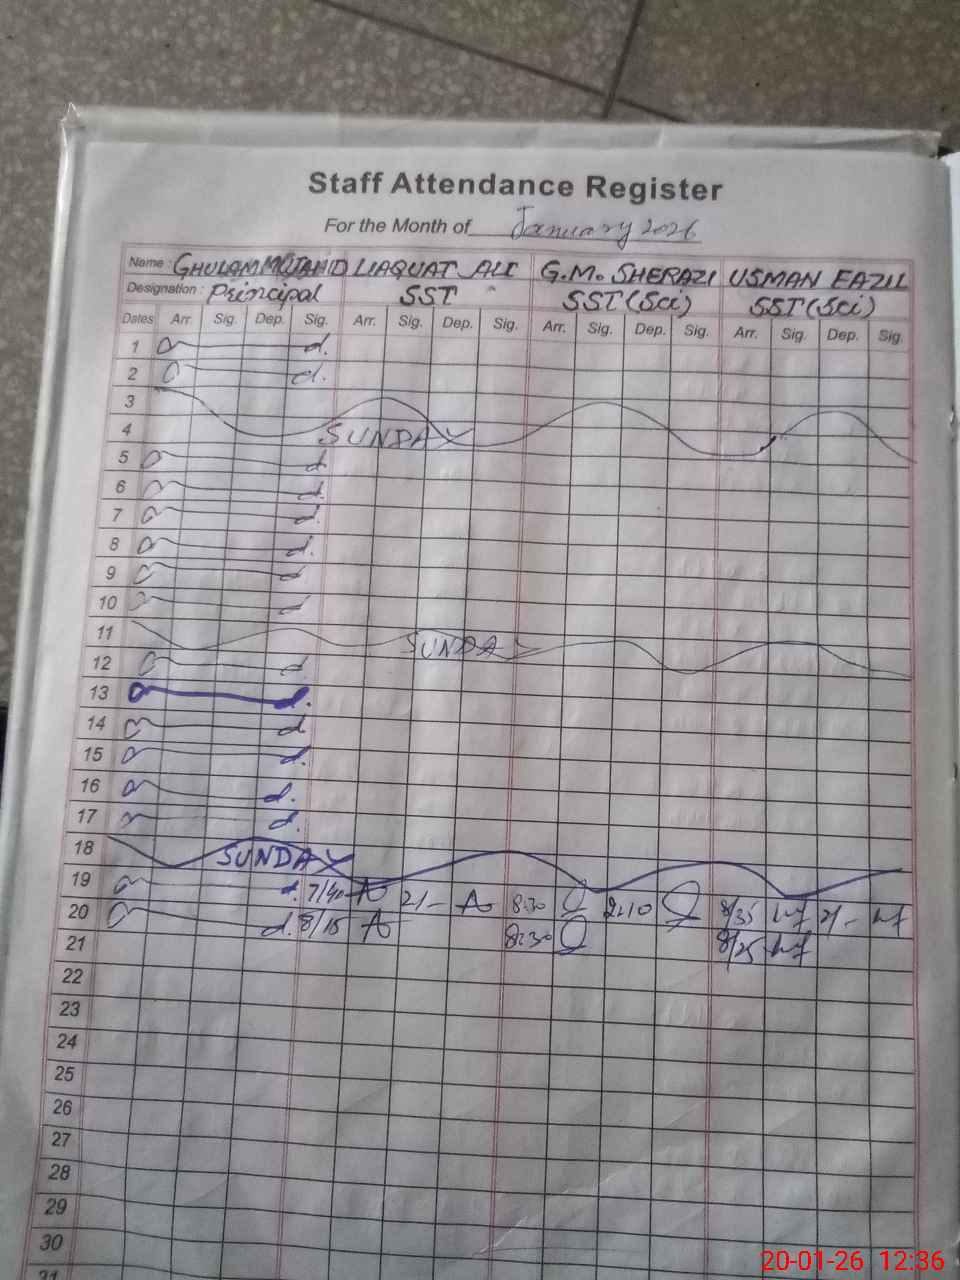 Staff Attendance Register
For the Month of January 2026
Name : GHULAM MUJAHID LIAQUAT ALI G.M. SHERAZI USMAN FAZIL
Designation : Principal SST SST (Sci) SST (Sci)
Dates Arr. Sig. Dep. Sig. Arr. Sig. Dep. Sig. Arr. Sig. Dep. Sig. Arr. Sig. Dep. Sig.
1
2
3
4 SUNDAY
5
6
7
8
9
10
11 SUNDAY
12
13
14
15
16
17
18 SUNDAY
19 7/40 2/- 8:30 2:10 8/35 2/-
20 8/15 8:30 8/25
21
22
23
24
25
26
27
28
29
30
31
20-01-26 12:36